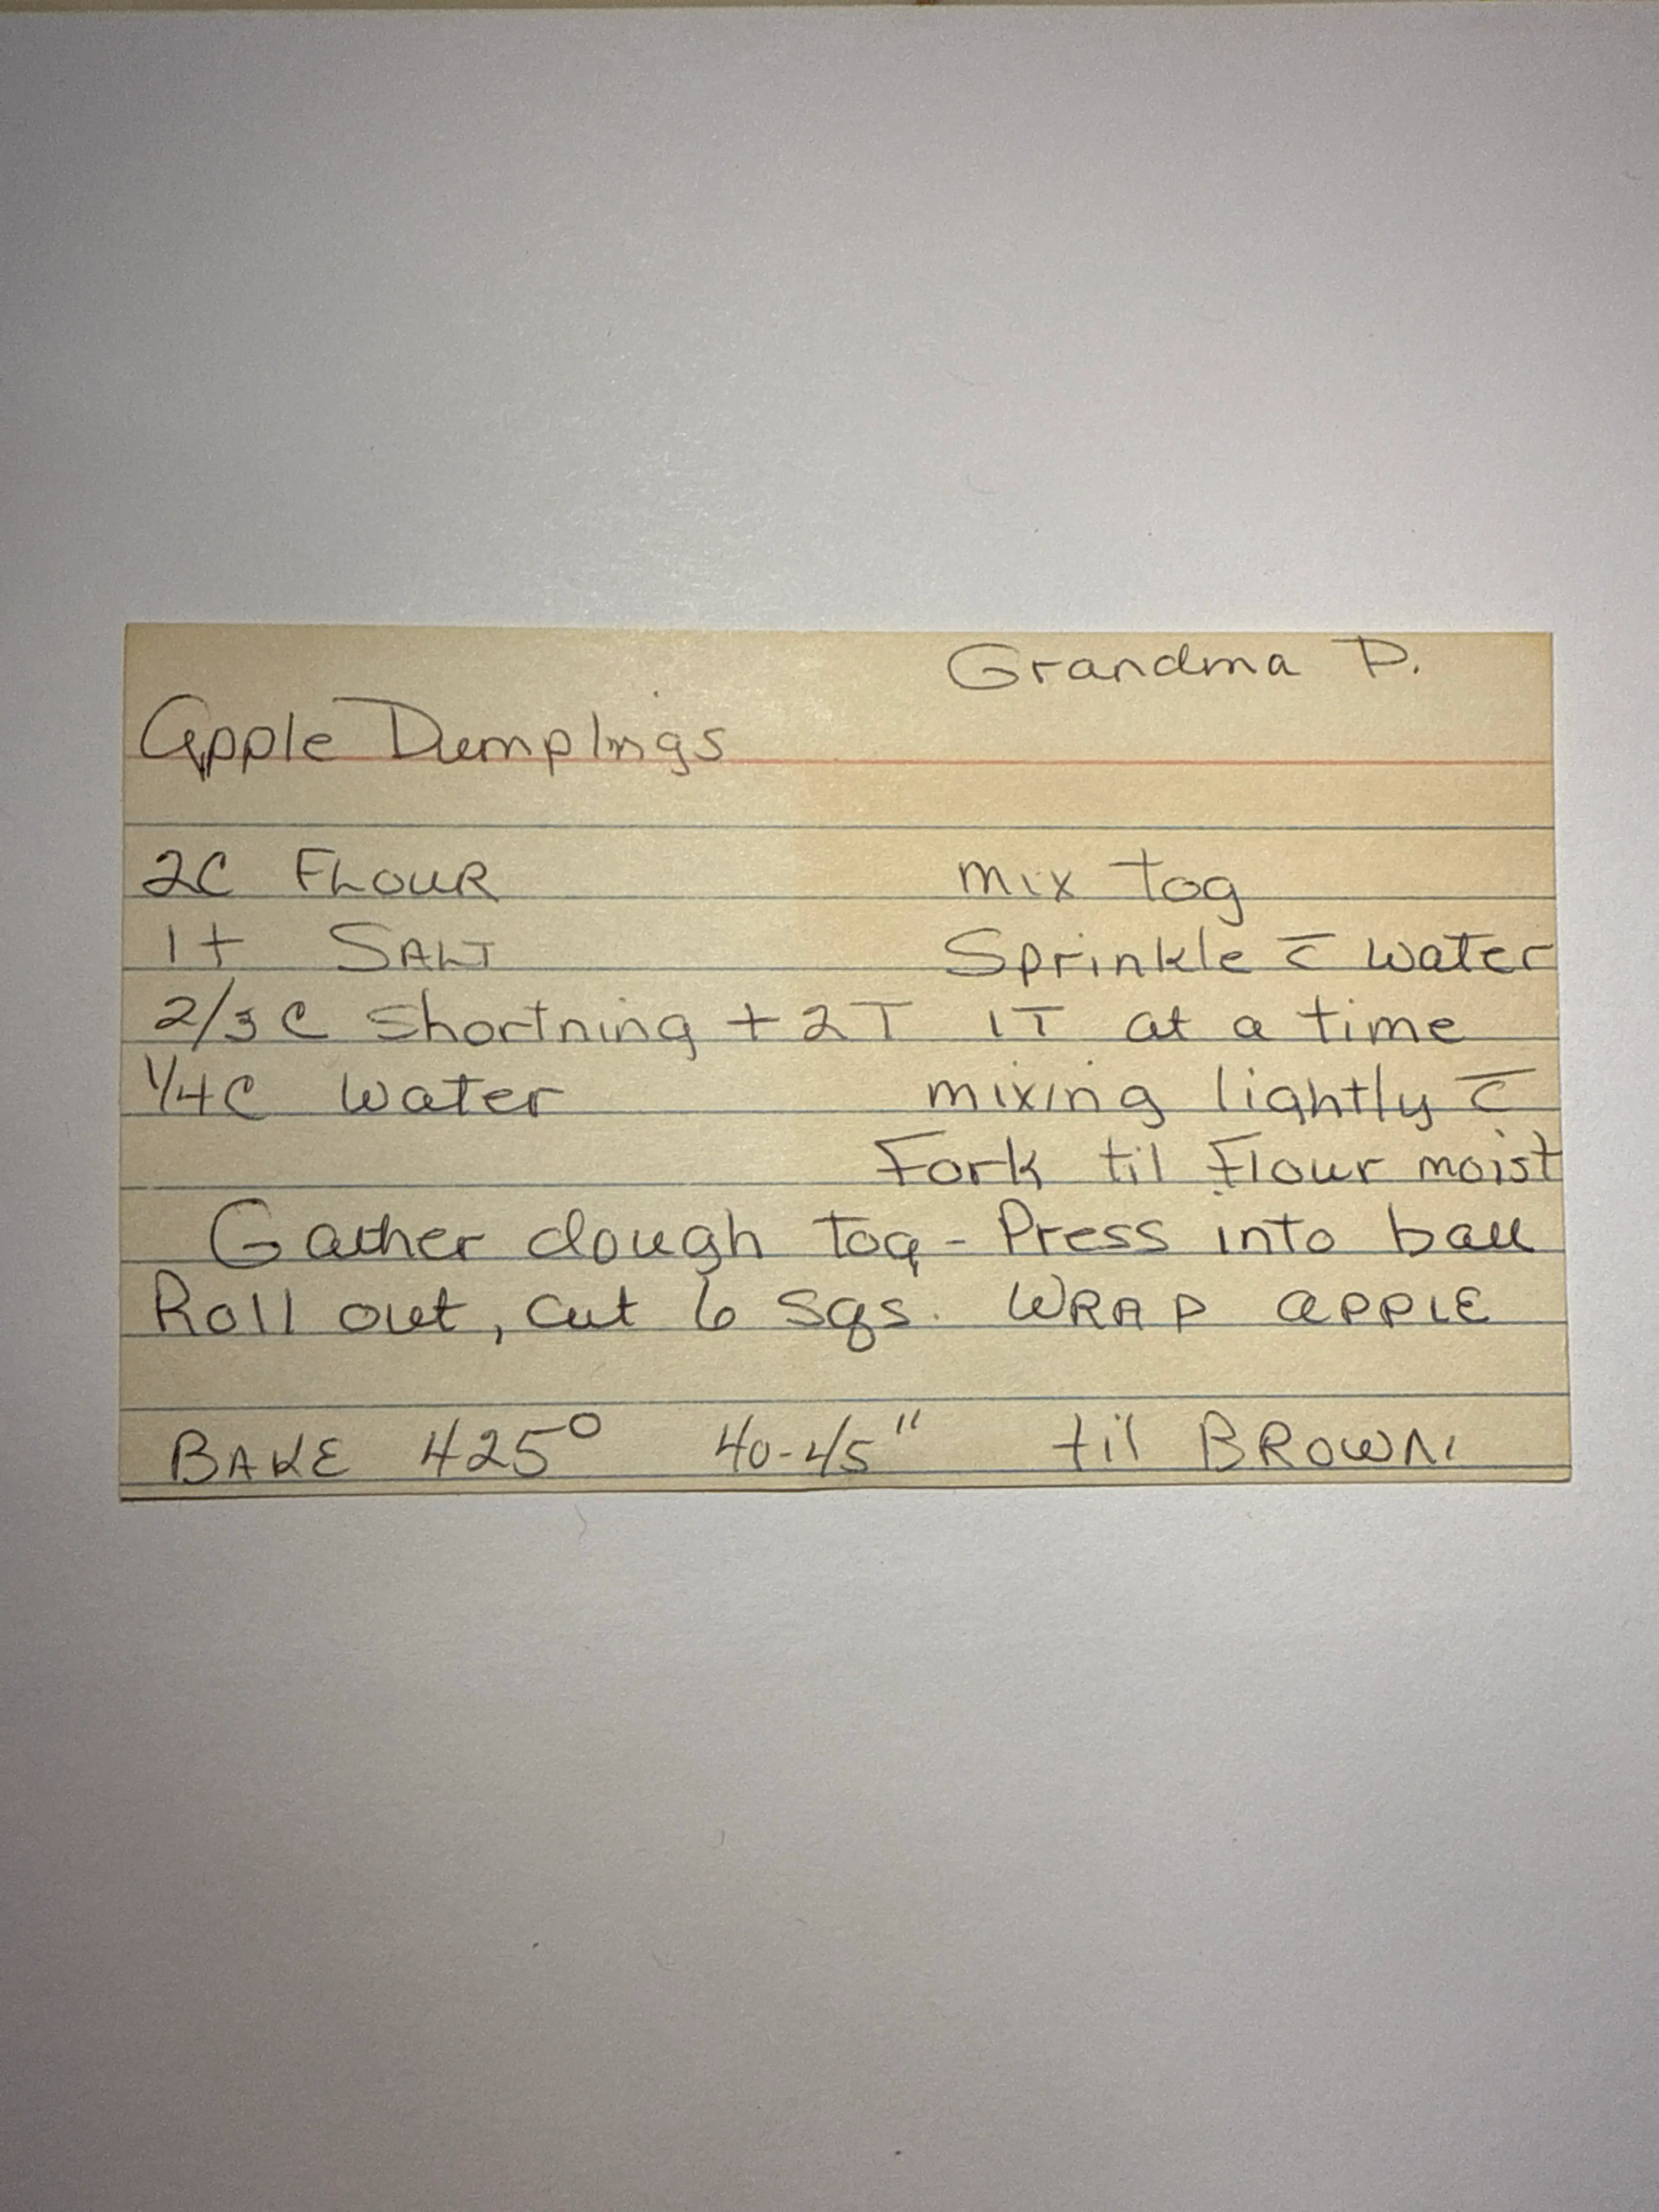 Grandma P.
Apple Dumplings
2C FLOUR mix tog
1t SALT Sprinkle c̄ water
2/3 C Shortning + 2T 1T at a time
1/4C Water mixing lightly c̄
Fork til Flour moist
Gather dough tog - Press into ball
Roll out, cut 6 sqs. WRAP APPLE
BAKE 425° 40-45" til BROWN.